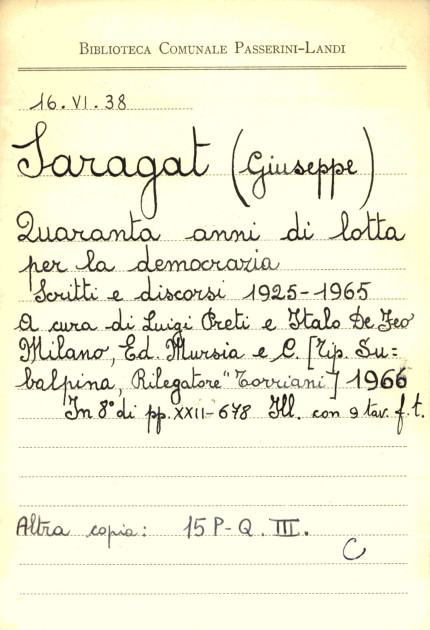 Biblioteca Comunale Passerini-Landi
16.VI.38
Saragat (Giuseppe)
Quaranta anni di lotta
per la democrazia
Scritti e discorsi 1925-1965
A cura di Luigi Preti e Italo De Feo
Milano, Ed. Mursia e C. [Tip. Su=
balpina, Rilegatore "Torriani"] 1966
In 8° di pp. XXII-678 Ill. con 9 tav. f.t.
Altra copia: 15 P-Q. III.
C